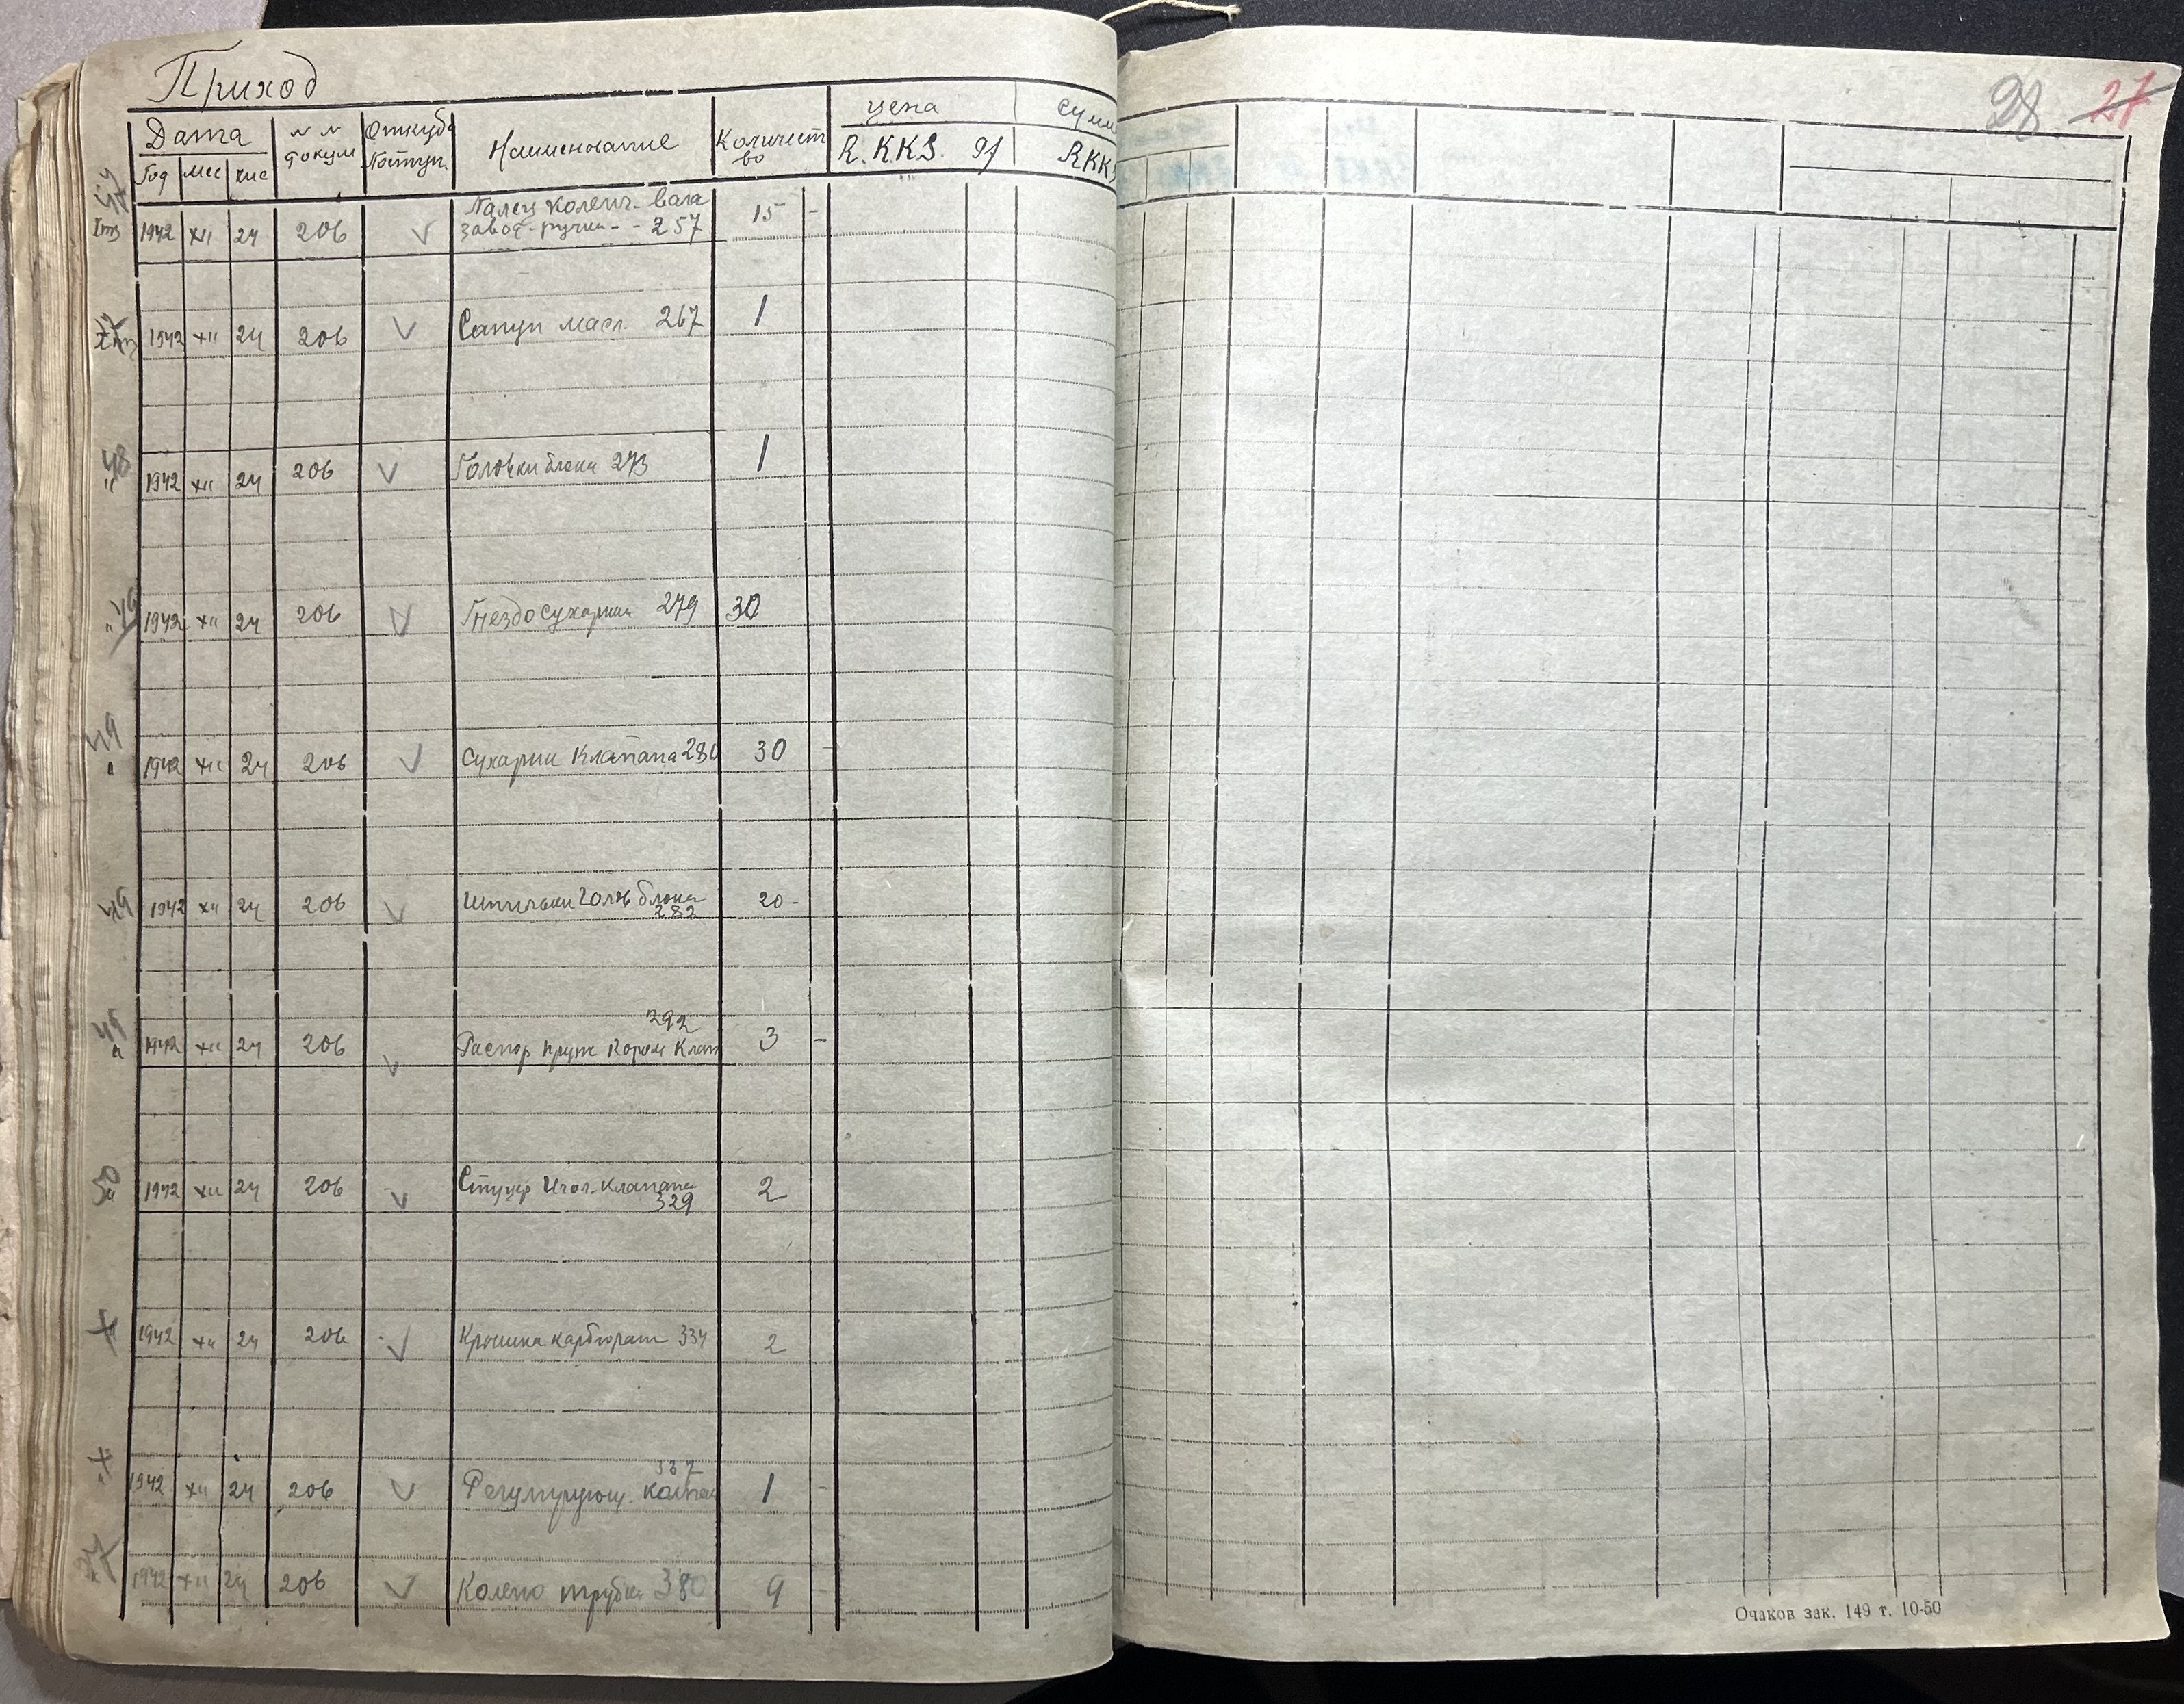 Приход
28 27
Дата N N докум Откуда Поступ. Наименование Количество цена сумм
Год мес чис R.KKS. RKKS
Палец коленч. вала
1942 XII 24 206 V завод. ручки - - 257 15 -
1942 XII 24 206 V Сапун масл. 267 1
48
1942 XII 24 206 V Головки блока 273 1
49
1942 XII 24 206 V Гнездо сухарика 279 30
49
1942 XII 24 206 V Сухарик Клапана 280 30 -
49 1942 XII 24 206 V Шпильки голов блока 20 -
282
49
292
1942 XII 24 206 V Распор пруж Кором Клап 3 -
50 1942 XII 24 206 V Стуцер Игол. Клапана 2
329
1942 XII 24 206 V Крышка карбюрат 334 2
337
1942 XII 24 206 V Регулирующ. 1 -
1942 XII 24 206 V Колено трубки 380 9 -
Очаков зак. 149 т. 10-50